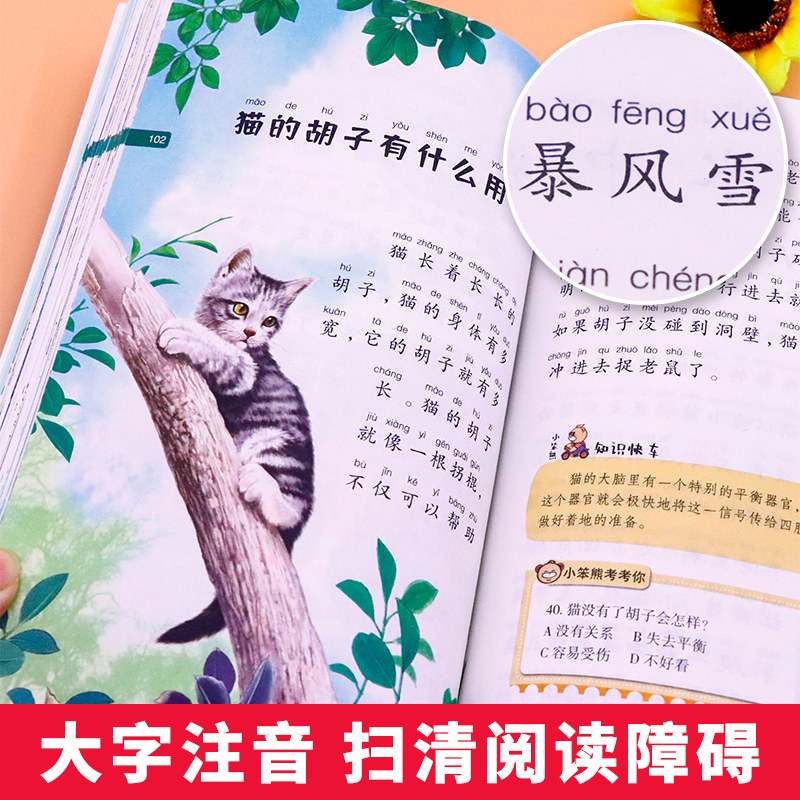 102
māo de hú zi yǒu shén me
猫的胡子有什么用
māo zhǎng zhe cháng cháng de
猫长着长长的
hú zi māo de shēn tǐ yǒu duō
胡子，猫的身体有多
kuān tā de hú zi jiù yǒu duō
宽，它的胡子就有多
cháng māo de hú zi
长。猫的胡子
jiù xiàng yì gēn guǎi gùn
就像一根拐棍，
bù jǐn kě yǐ bāng zhù
不仅可以帮助
bào fēng xuě
暴风雪
jiàn chéng
行进去就
hú zi méi pèng dào dòng bì māo
如果胡子没碰到洞壁，猫
chōng jìn qu zhuō lǎo shǔ le
冲进去捉老鼠了。
小笨熊
知识快车
猫的大脑里有一个特别的平衡器官，
这个器官就会极快地将这一信号传给四肢
做好着地的准备。
小笨熊考考你
40. 猫没有了胡子会怎样？
A 没有关系 B 失去平衡
C 容易受伤 D 不好看
大字注音 扫清阅读障碍